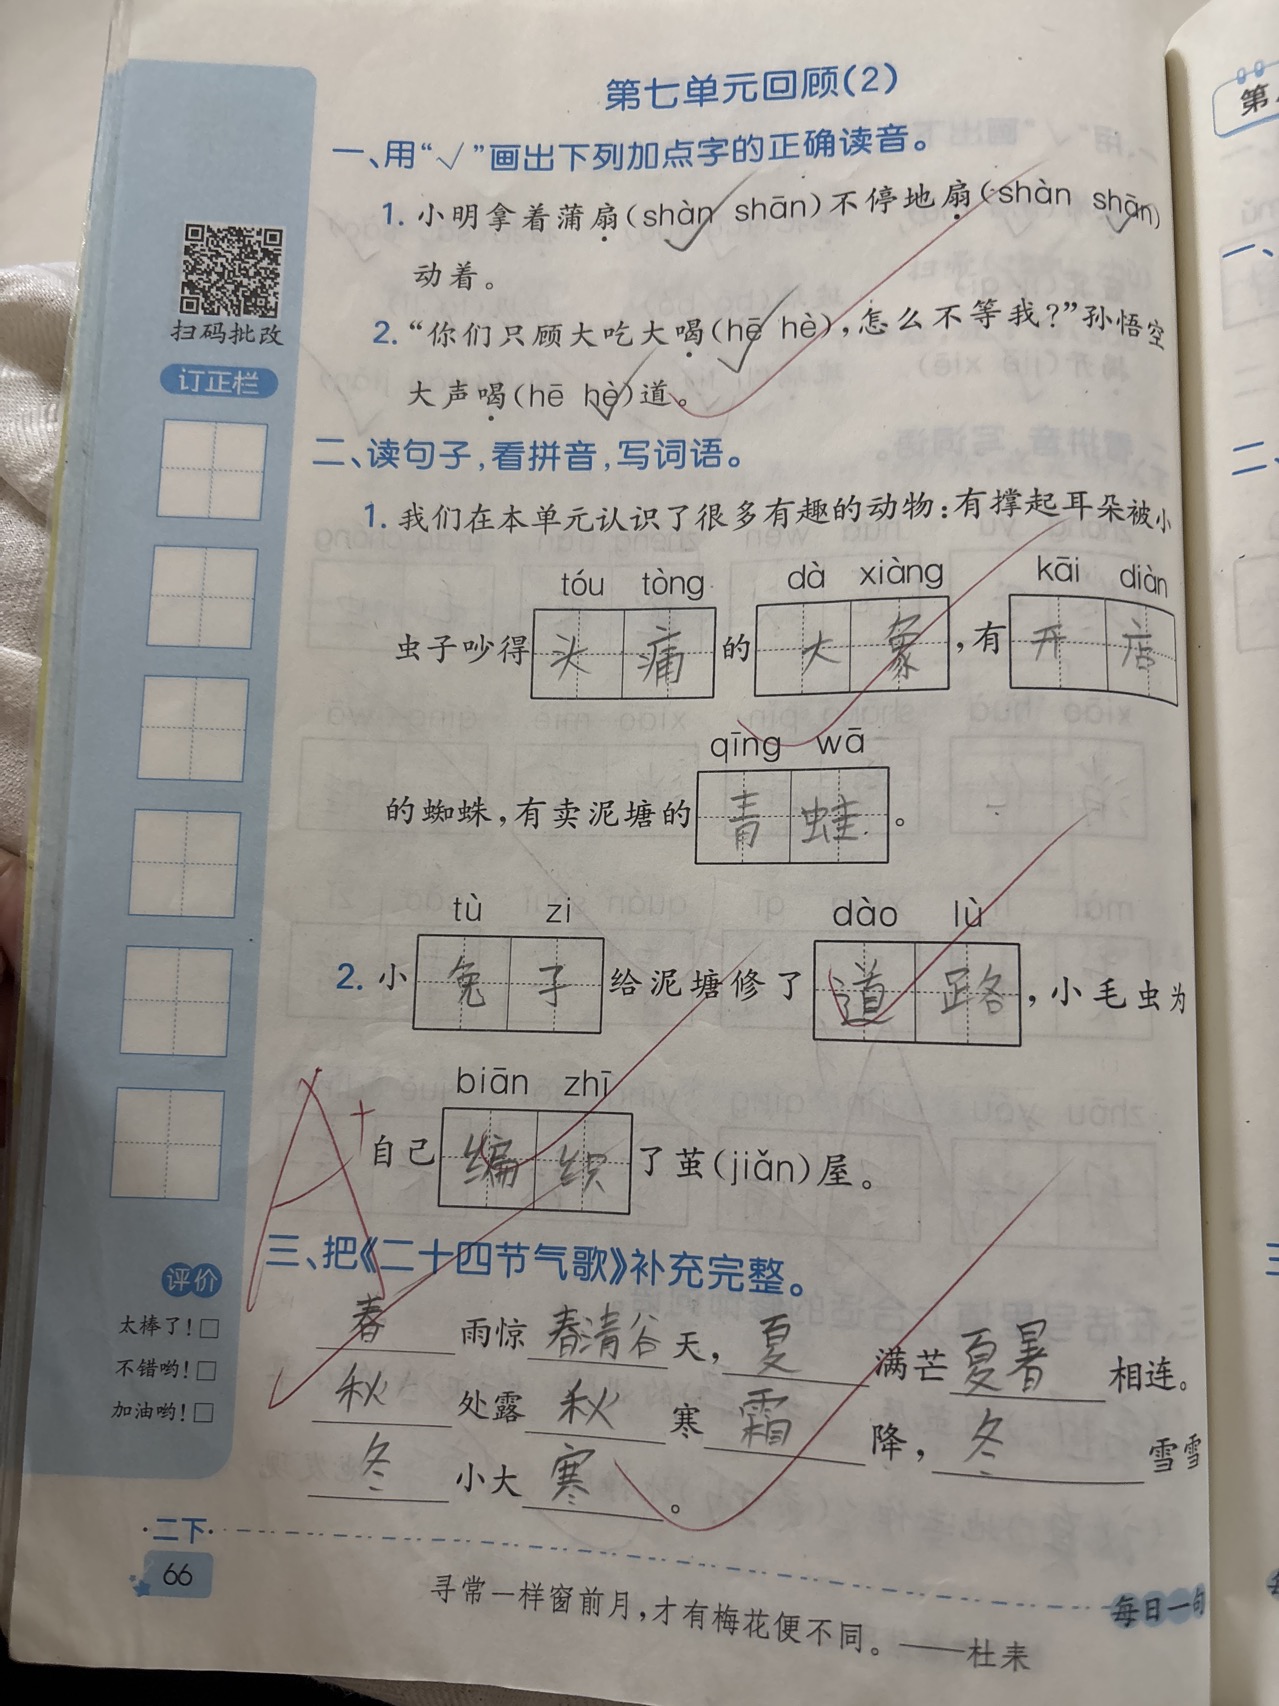 第七单元回顾(2)
一、用“√”画出下列加点字的正确读音。
1. 小明拿着蒲扇(shàn shān)不停地扇(shàn shān)
动着。
2. “你们只顾大吃大喝(hē hè),怎么不等我?”孙悟空
大声喝(hē hè)道。
二、读句子,看拼音,写词语。
1. 我们在本单元认识了很多有趣的动物:有撑起耳朵被小
tóu tòng dà xiàng kāi diàn
虫子吵得头痛的大象,有开店
qīng wā
的蜘蛛,有卖泥塘的青蛙。
tù zi dào lù
2. 小兔子给泥塘修了道路,小毛虫为
biān zhī
自己编织了茧(jiǎn)屋。
A+
三、把《二十四节气歌》补充完整。
春雨惊春清谷天,夏满芒夏暑相连。
秋处露秋寒霜降,冬雪雪
冬小大寒。
扫码批改
订正栏
评价
太棒了!□
不错哟!□
加油哟!□
·二下·
66
寻常一样窗前月,才有梅花便不同。——杜耒
每日一句
第
一、
二、
三